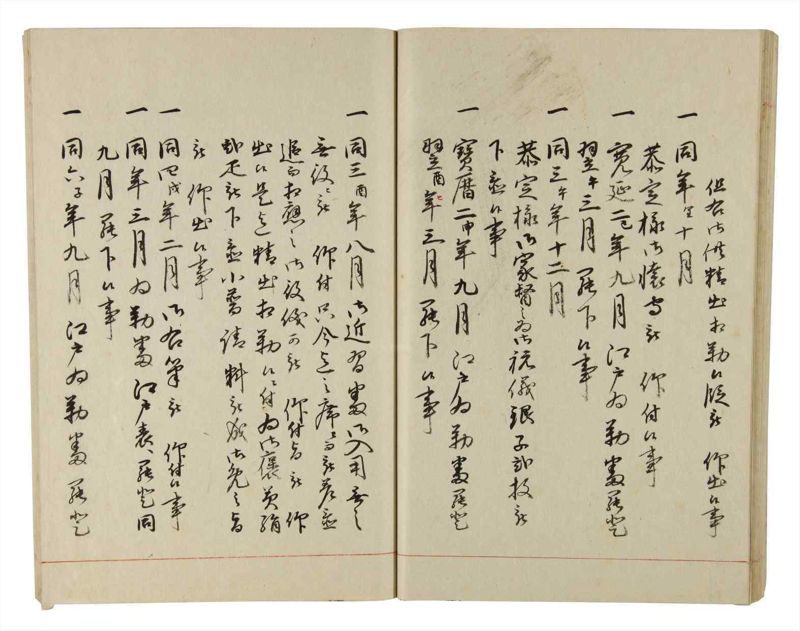 但右御供精出相勤候段被 仰出候事
一 同年里十月
恭定様御懐守被 仰付候事
一 寛延二巳年九月江戸為勤番罷登
翌午三月罷下候事
一 同三午年十二月
恭定様御家督之為御祝儀銀子弐枚被
下置候事
一 宝暦二申年九月江戸為勤番罷登
翌酉年三月罷下候事
一 同三酉年八月御近習番御入用無之
無役ニ被 仰付只今迄之席ニ而被差置
追而相應之御役儀可被 仰付旨被 仰
出候是迄精出相勤候ニ付為御褒美絹
弐疋被下置小普請料被成御免之旨
被 仰出候事
一 同四戌年二月御右筆被 仰付候事
一 同年三月為勤番江戸表へ罷登同
九月罷下候事
一 同六子年九月江戸為勤番罷登